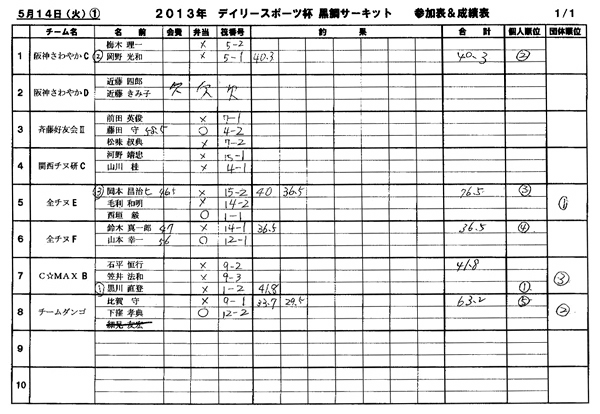 5月14日（火）① 2013年 デイリースポーツ杯 黒鯛サーキット 参加表＆成績表 1/1
チーム名 名 前 会費 弁当 筏番号 釣 果 合 計 個人順位 団体順位
1 阪神さわやかC 栃木 理一 × 5-2
② 岡野 光和 × 5-1 40.3 40.3 ②
2 阪神さわやかD 近藤 四郎
近藤 きみ子 欠 欠 欠
3 斉藤好友会Ⅱ 前田 英俊 × 7-1
藤田 守 48.5 ○ 4-2
松味 叔典 × 7-2
4 関西チヌ研C 河野 靖忠 × 15-1
山川 桂 × 4-1
5 全チヌE ③ 岡本 昌治 46.5 × 15-2 40 36.5 76.5 ③
毛利 和明 × 14-2 ①
西垣 毅 ○ 1-1
6 全チヌF 鈴木 真一郎 47 × 14-1 36.5 36.5 ④
山本 幸一 56 ○ 12-1
7 C☆MAX B 石平 恒行 × 9-2 41.8
笠井 法和 × 9-3 ③
① 黒川 直登 × 1-2 41.8 ①
8 チームダンゴ 比賀 守 × 9-1 33.7 29.5 63.2 ⑤
下窪 孝典 ○ 12-2 ②
細見 友宏
9
10